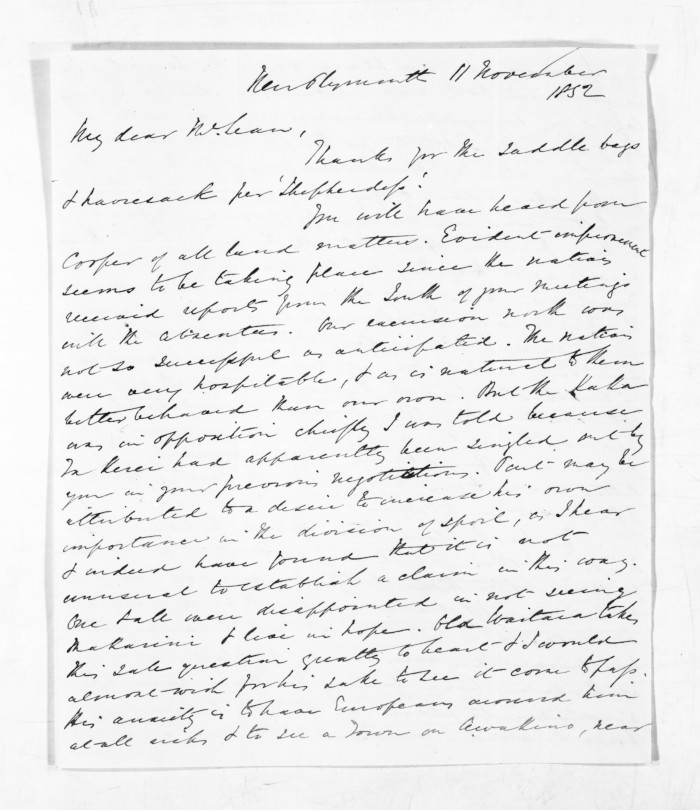 New Plymouth 11 November
1852
My dear McLean,
Thanks for the saddle bags
& haversack per 'Shepherdess'.
You will have heard from
Cooper of all land matters. Evident improvement
seems to be taking place since the natives
received reports from the South of your meetings
with the absentees. Our excursion north was
not so successful as anticipated. The natives
were very hospitable, & as is natural to them
better behaved than our own. But the Kaka
was in opposition chiefly I was told because
Ta Kerei had apparently been singled out by
you in your previous negotiations. Part may be
attributed to a desire to increase his own
importance in the division of spoil, as I hear
& indeed have found that it is not
unusual to establish a claim in this way.
One & all were disappointed in not seeing
Makarini & live in hope. Old Waitara takes
this sale question greatly to heart & I would
almost wish for his sake to see it come to pass.
His anxiety is to have Europeans around him
at all risks & to see a Town on Awakino, near